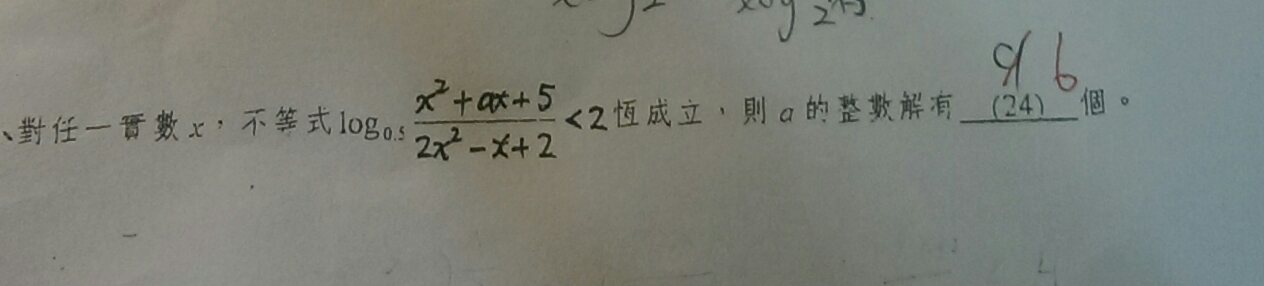 、對任一實數 x，不等式 log₀.₅ (x²+ax+5)/(2x²-x+2) <2 恆成立，則 a 的整數解有 (24) 個。
6